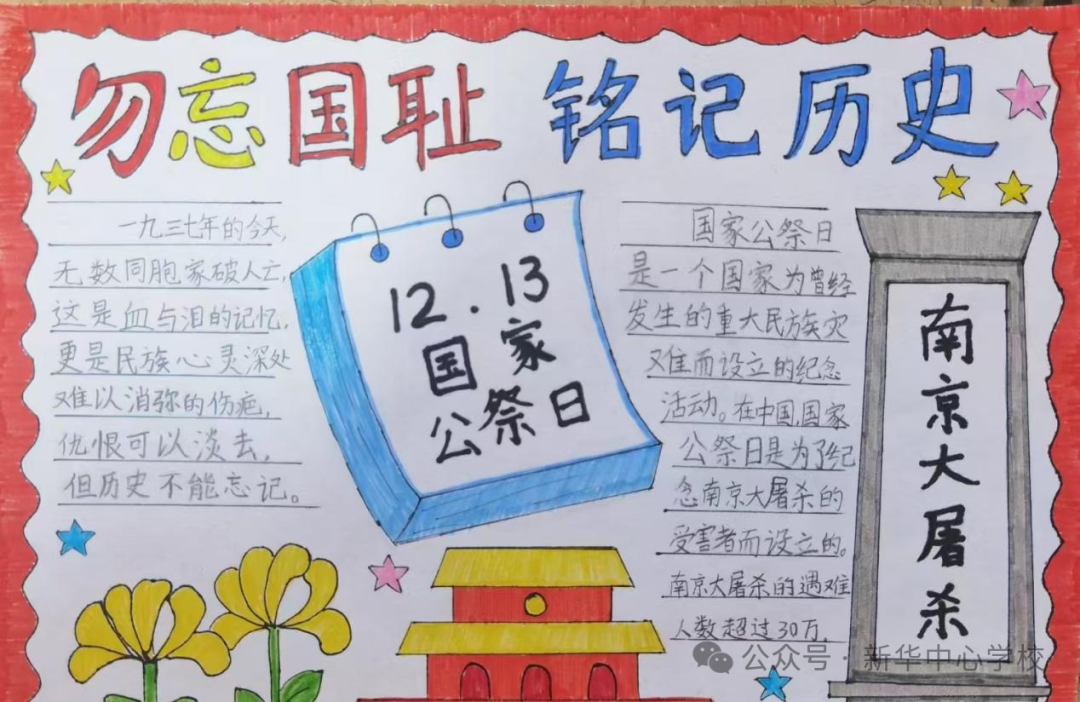 勿忘国耻 铭记历史
一九三七年的今天,
无数同胞家破人亡,
这是血与泪的记忆,
更是民族心灵深处
难以消弥的伤疤,
仇恨可以淡去,
但历史不能忘记。
12.13
国家
公祭日
国家公祭日
是一个国家为曾经
发生的重大民族灾
难而设立的纪念
活动。在中国,国家
公祭日是为了纪
念南京大屠杀的
受害者而设立的。
南京大屠杀的遇难
人数超过30万,
南京大屠杀
公众号·新华中心学校